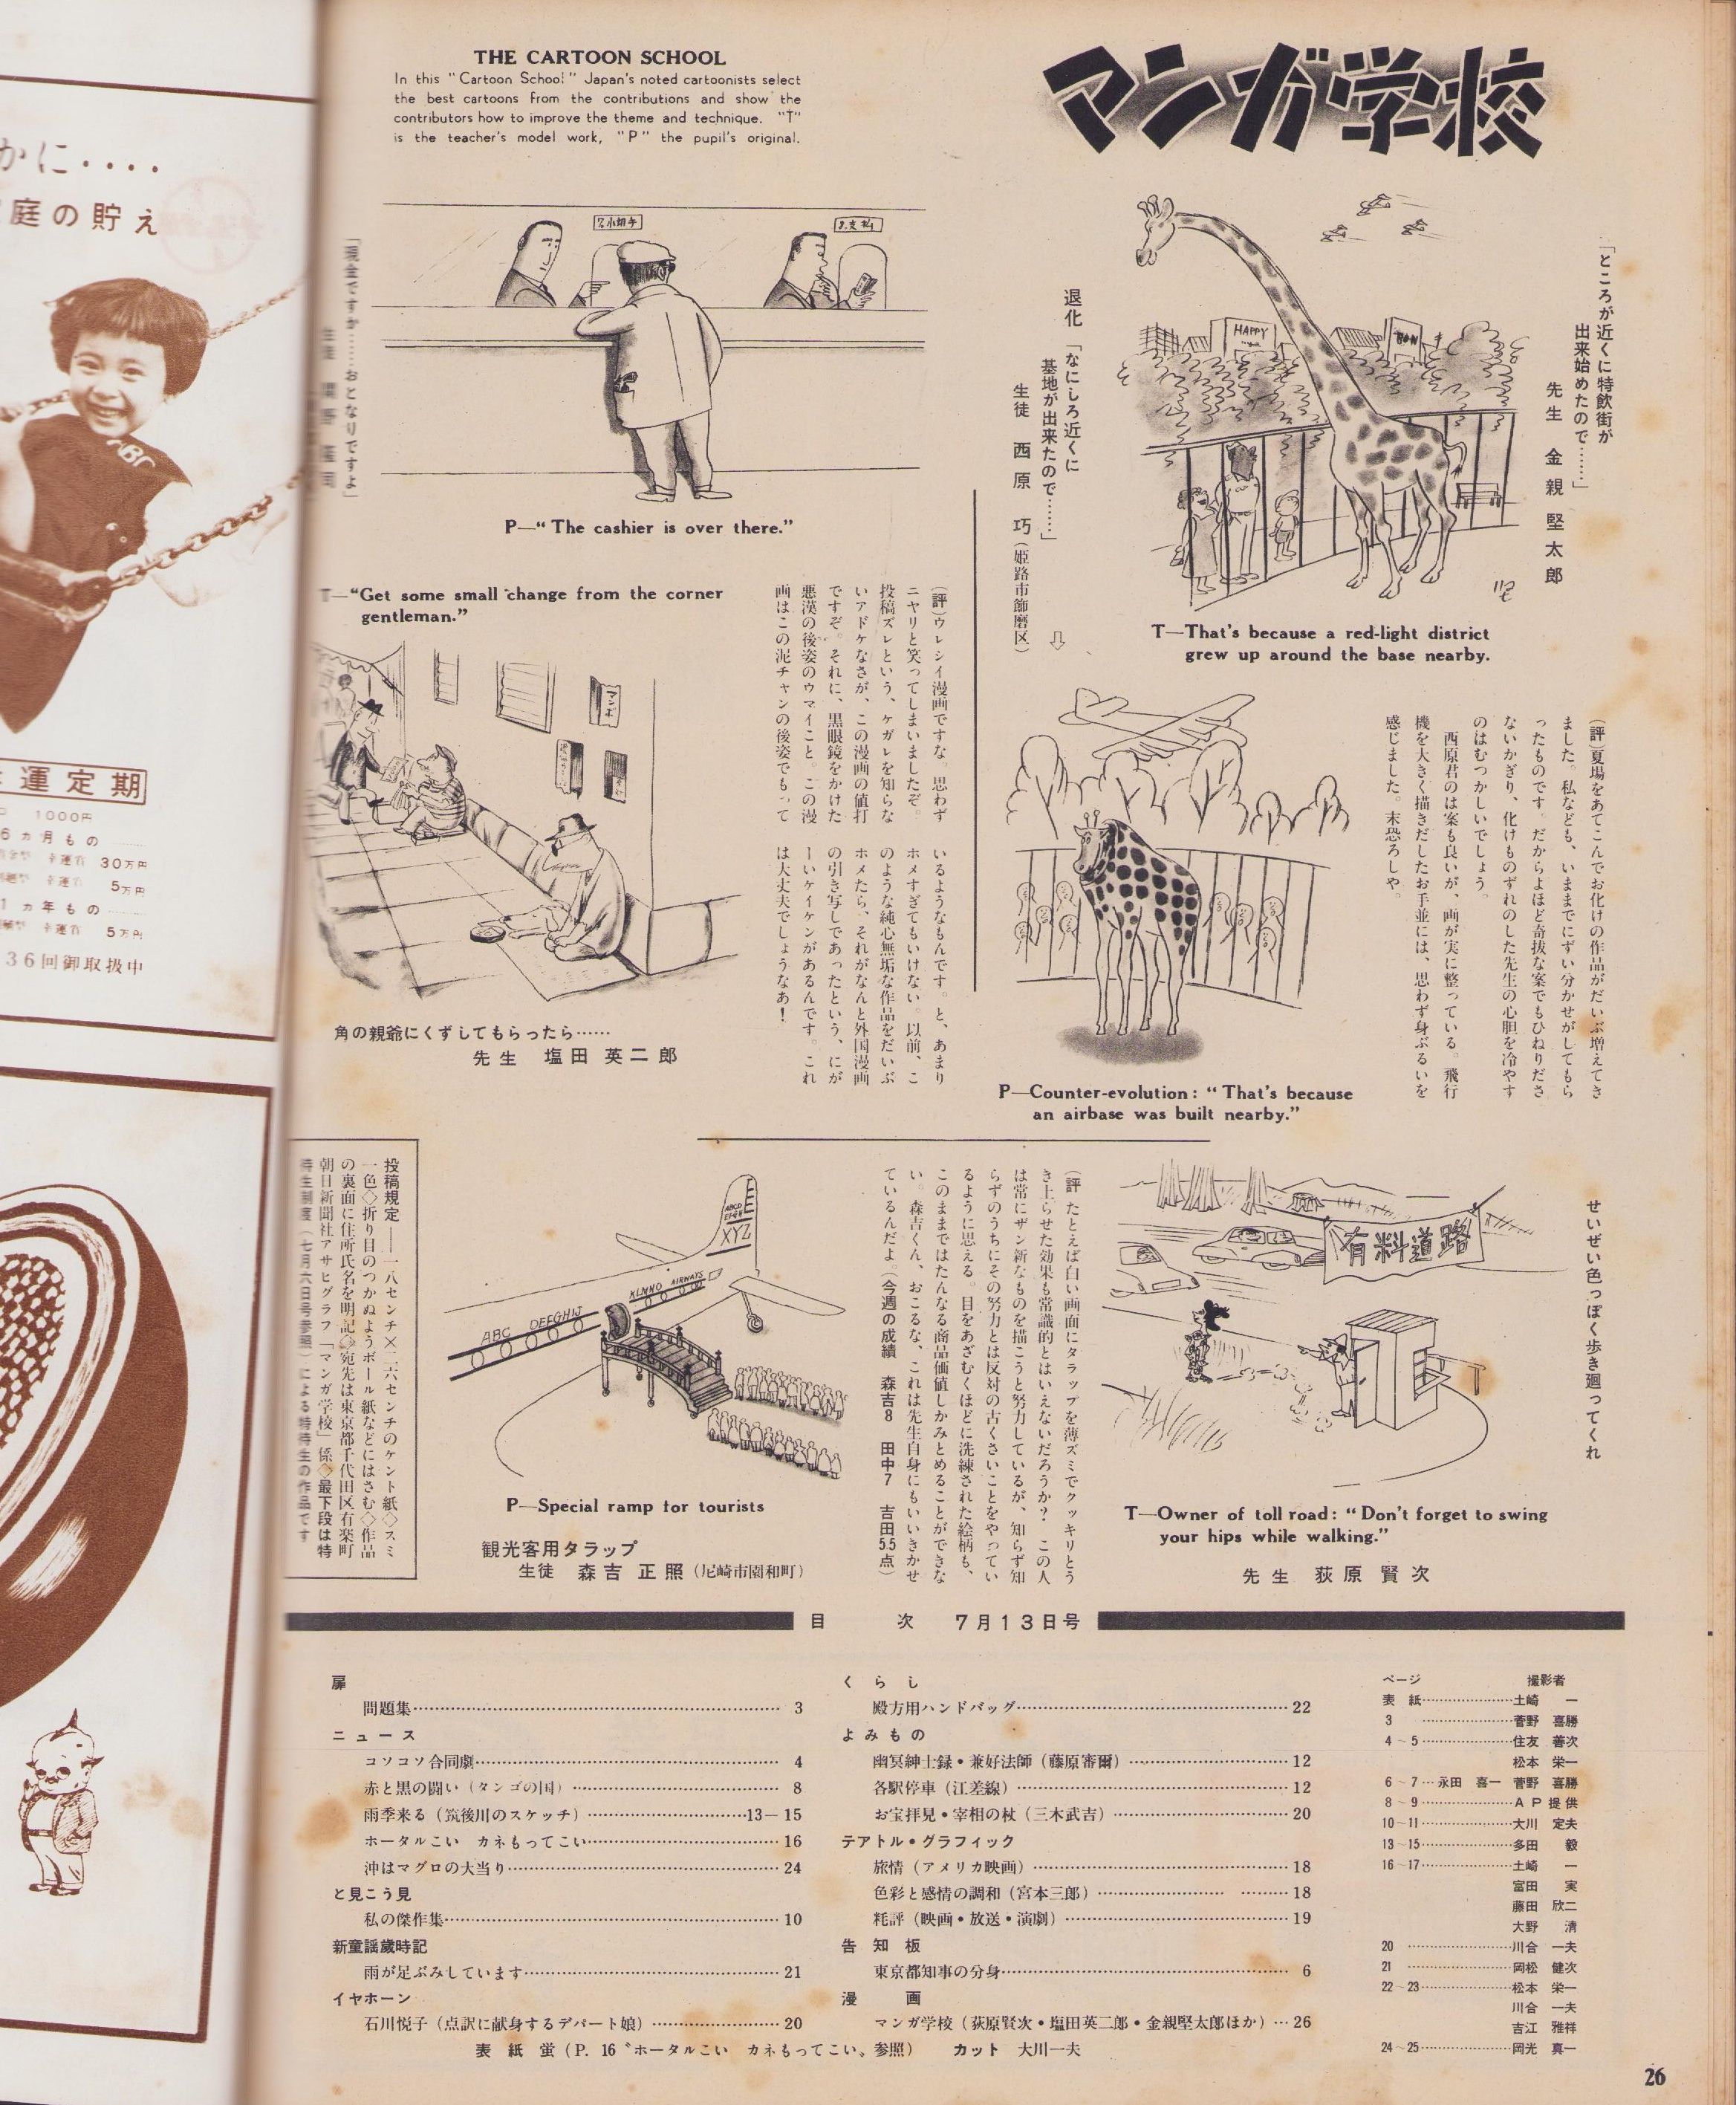 マンガ学校
THE CARTOON SCHOOL
In this "Cartoon School" Japan's noted cartoonists select
the best cartoons from the contributions and show the
contributors how to improve the theme and technique. "T"
is the teacher's model work, "P" the pupil's original.
「ところが近くに特飲街が
出来始めたので……」
先生 金親堅太郎
HAPPY
T—That's because a red-light district
grew up around the base nearby.
退化 「なにしろ近くに
基地が出来たので……」
生徒 西原 巧(姫路市飾磨区)
P—Counter-evolution: "That's because
an airbase was built nearby."
(評)夏場をあてこんでお化けの作品がだいぶ増えてき
ました。私なども、いままでにずい分かせがしてもら
ったものです。だからよほど奇抜な案でもひねりださ
ないかぎり、化けものずれのした先生の心胆を冷やす
のはむつかしいでしょう。
西原君のは案も良いが、画が実に整っている。飛行
機を大きく描きだしたお手並には、思わず身ぶるいを
感じました。末恐ろしや。
「現金ですか……おとなりですよ」
小切手
支払
P—"The cashier is over there."
T—"Get some small change from the corner
gentleman."
マンボ
角の親爺にくずしてもらったら……
先生 塩田 英二郎
(評)ウレシイ漫画ですな。思わず
ニヤリと笑ってしまいましたぞ。
投稿ズレという、ケガレを知らな
いアドケなさが、この漫画の値打
ですぞ。それに、黒眼鏡をかけた
悪漢の後姿のウマイこと。この漫
画はこの泥チャンの後姿でもって
いるようなもんです。と、あまり
ホメすぎてもいけない。以前、こ
のような純心無垢な作品をだいぶ
ホメたら、それがなんと外国漫画
の引き写しであったという、にが
ーいケイケンがあるんです。これ
は大丈夫でしょうなあ!
せいぜい色っぽく歩き廻ってくれ
有料道路
T—Owner of toll road: "Don't forget to swing
your hips while walking."
先生 荻原 賢次
(評)たとえば白い画面にタラップを薄ズミでクッキリとう
き上らせた効果も常識的とはいえないだろうか? この人
は常にザン新なものを描こうと努力しているが、知らず知
らずのうちにその努力とは反対の古くさいことをやってい
るように思える。目をあざむくほどに洗練された絵柄も、
このままではたんなる商品価値しかみとめることができな
い。森吉くん、おこるな、これは先生自身にもいいきかせ
ているんだよ。(今週の成績 森吉8 田中7 吉田5.5点)
ABCD
EFGH
XYZ
KLMNO AIRWAYS
ABC DEEGHIJ
P—Special ramp for tourists
観光客用タラップ
生徒 森吉 正照(尼崎市園和町)
投稿規定——一八センチ×二六センチのケント紙◇スミ
一色◇折り目のつかぬようボール紙などにはさむ◇作品
の裏面に住所氏名を明記◇宛先は東京都千代田区有楽町
朝日新聞社アサヒグラフ「マンガ学校」係◇最下段は特
待生制度(七月六日号参照)による特待生の作品です
目 次 7月13日号
扉
問題集 3
ニュース
コソコソ合同劇 4
赤と黒の闘い(タンゴの国) 8
雨季来る(筑後川のスケッチ) 13—15
ホータルこい カネもってこい 16
沖はマグロの大当り 24
と見こう見
私の傑作集 10
新童謡歳時記
雨が足ぶみしています 21
イヤホーン
石川悦子(点訳に献身するデパート娘) 20
くらし
殿方用ハンドバッグ 22
よみもの
幽冥紳士録・兼好法師(藤原審爾) 12
各駅停車(江差線) 12
お宝拝見・宰相の杖(三木武吉) 20
テアトル・グラフィック
旅情(アメリカ映画) 18
色彩と感情の調和(宮本三郎) 18
粍評(映画・放送・演劇) 19
告知板
東京都知事の分身 6
漫画
マンガ学校(荻原賢次・塩田英二郎・金親堅太郎ほか) 26
表紙 蛍(P. 16〝ホータルこい カネもってこい〟参照) カット 大川一夫
ページ 撮影者
表紙 土崎 一
3 菅野 喜勝
4~5 住友 善次
松本 栄一
6~7 永田 喜一 菅野 喜勝
8~9 AP提供
10~11 大川 定夫
13~15 多田 毅
16~17 土崎 一
富田 実
藤田 欣二
大野 清
20 川合 一夫
21 岡松 健次
22~23 松本 栄一
川合 一夫
吉江 雅祥
24~25 岡光 真一
26
かに‥‥
庭の貯え
ABC
運定期
1000円
6ヵ月もの
30万円
5万円
1ヵ年もの
5万円
36回御取扱中